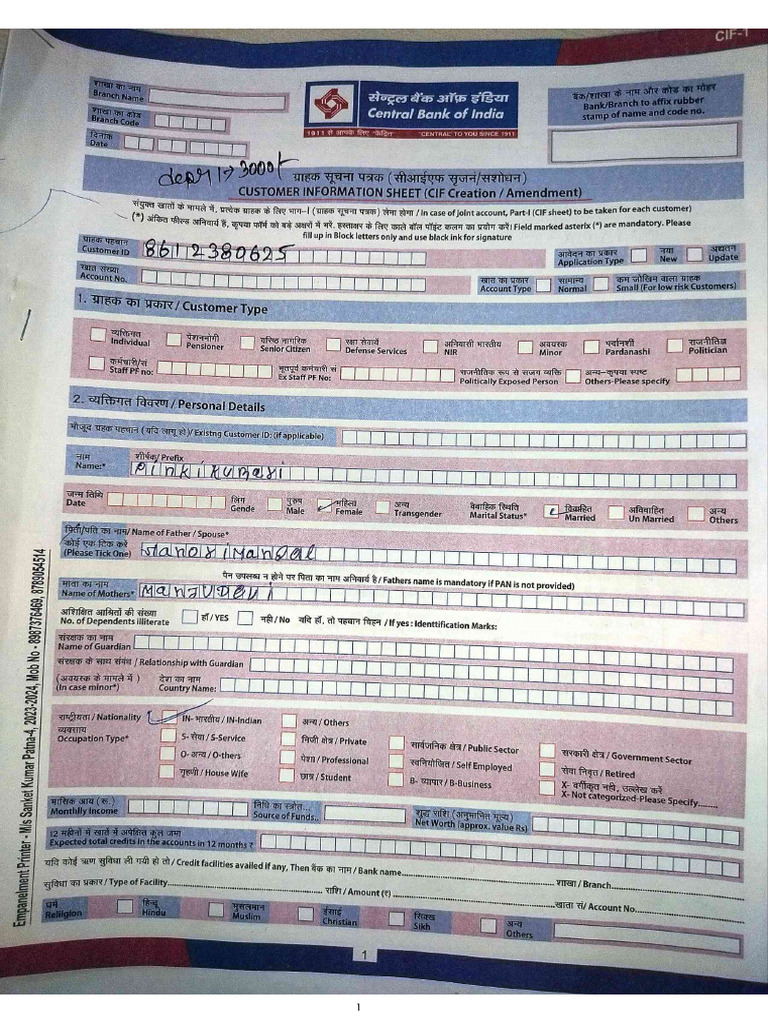 CIF-1
शाखा का नाम
Branch Name
शाखा का कोड
Branch Code
दिनांक
Date
सेन्ट्रल बैंक ऑफ़ इंडिया
Central Bank of India
1911 से आपके लिए "केंद्रित" "CENTRAL" TO YOU SINCE 1911
बैंक/शाखा के नाम और कोड का मोहर
Bank/Branch to affix rubber
stamp of name and code no.
3000/-
ग्राहक सूचना पत्रक (सीआईएफ सृजन/संशोधन)
CUSTOMER INFORMATION SHEET (CIF Creation / Amendment)
संयुक्त खातों के मामले में, प्रत्येक ग्राहक के लिए भाग-I (ग्राहक सूचना पत्रक) लेना होगा / In case of joint account, Part-I (CIF sheet) to be taken for each customer)
(*) अंकित फील्ड अनिवार्य हैं, कृपया फॉर्म को बड़े अक्षरों में भरें. हस्ताक्षर के लिए काले बॉल पॉइंट कलम का प्रयोग करें / Field marked asterix (*) are mandatory. Please
fill up in Block letters only and use black ink for signature
ग्राहक पहचान
Customer ID 86112380625
आवेदन का प्रकार नया अद्यतन
Application Type New Update
खाता संख्या
Account No.
खाते का प्रकार सामान्य कम जोखिम वाला ग्राहक
Account Type Normal Small (For low risk Customers)
1. ग्राहक का प्रकार / Customer Type
व्यक्तिगत पेंशनभोगी वरिष्ठ नागरिक रक्षा सेवायें अनिवासी भारतीय अवयस्क पर्दानशी राजनीतिज्ञ
Individual Pensioner Senior Citizen Defense Services NIR Minor Pardanashi Politician
कर्मचारी/सं भूतपूर्व कर्मचारी सं राजनीतिक रूप से सजग व्यक्ति अन्य-कृपया स्पष्ट
Staff PF no: Ex Staff PF No: Politically Exposed Person Others-Please specify
2. व्यक्तिगत विवरण / Personal Details
मौजूद ग्रहक पहचान (यदि लागू हो)/ Existng Customer ID: (if applicable)
नाम शीर्षक/ Prefix
Name:* Pinki Kumari
जन्म तिथि लिंग पुरुष महिला अन्य वैवाहिक स्थिति विवाहित अविवाहित अन्य
Date Gende Male Female Transgender Marital Status* Married Un Married Others
पिता/पति का नाम/ Name of Father / Spouse*
कोई एक टिक करें
(Please Tick One) Manoj Mandal
पेन उपलब्ध न होने पर पिता का नाम अनिवार्य है / Fathers name is mandatory if PAN is not provided)
माता का नाम
Name of Mothers* Manju Devi
अशिक्षित आश्रितों की संख्या
No. of Dependents illiterate हाँ / YES नही / No यदि हाँ, तो पहचान चिहन / If yes : Identtification Marks:
संरक्षक का नाम
Name of Guardian
संरक्षक के साथ संबंध / Relationship with Guardian
(अवयस्क के मामले में) देश का नाम
(In case minor*) Country Name:
राष्ट्रीयता / Nationality IN- भारतीय / IN-Indian अन्य / Others
व्यवसाय
Occupation Type* S- सेवा / S-Service निजी क्षेत्र / Private सार्वजनिक क्षेत्र / Public Sector सरकारी क्षेत्र / Government Sector
O- अन्य / O-thers पेशा / Professional स्वनियोजित / Self Employed सेवा निवृत / Retired
गृहणी / House Wife छात्र / Student B- व्यापार / B-Business X- वर्गीकृत नही, उल्लेख करें
X- Not categorized-Please Specify......
मासिक आय (रू.) निधि का स्त्रोत... शुद्ध राशि (अनुमानित मूल्य)
Monthlly Income Source of Funds.. Net Worth (approx. value Rs)
12 महीनों में खाते में अपेक्षित कुल जमा
Expected total credits in the accounts in 12 months ₹
यदि कोई ऋण सुविधा ली गयी हो तो / Credit facilities availed if any, Then बैंक का नाम / Bank name...... शाखा / Branch......
सुविधा का प्रकार / Type of Facility...... राशि / Amount (₹) ...... खाता सं/ Account No......
धर्म हिन्दू मुसलमान ईसाई सिक्ख अन्य
Relilgion Hindu Muslim Christian Sikh Others
1
Empanelment Printer - M/s Sanket Kumar Patna-4, 2023-2024, Mob No - 8987376469, 8789054514
1